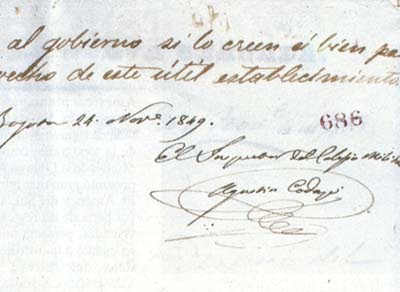 al gobierno si lo creen é bien pa
vecho de este útil establecimiento.
Bogota 24. Nov.e 1849.
686
El Inspector del Colejio Milita
Agustin Codazzi